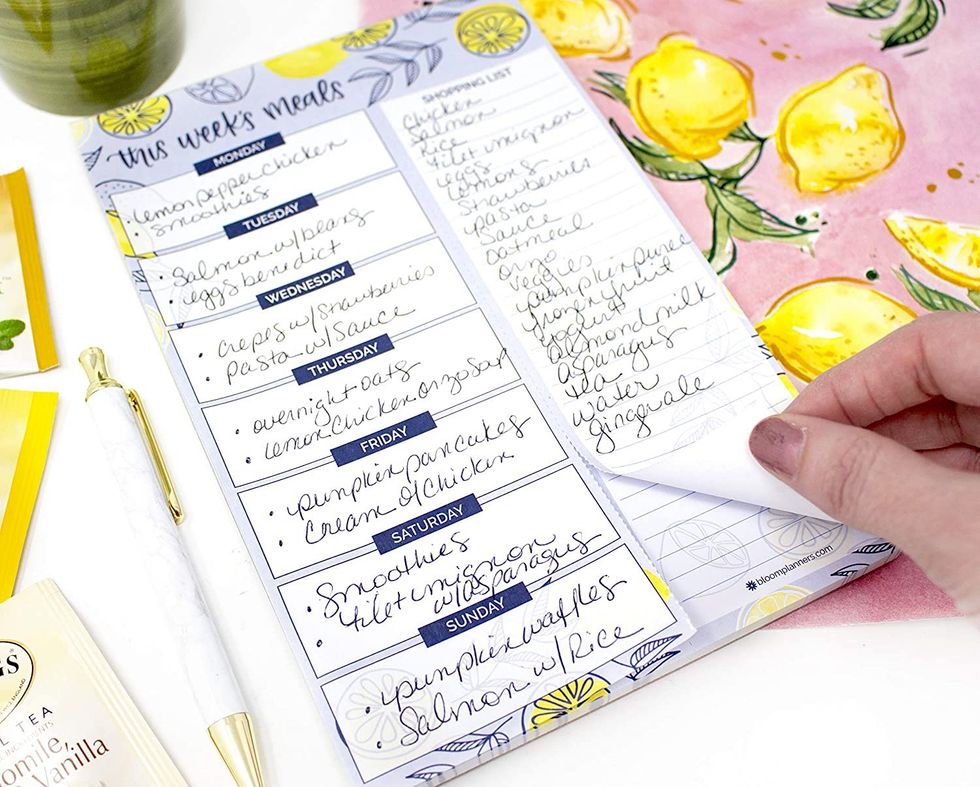 this week's meals
MONDAY
• lemon pepper chicken
• smoothies
TUESDAY
• Salmon w/beans
• eggs benedict
WEDNESDAY
• crepes w/strawberries
• pasta w/sauce
THURSDAY
• overnight oats
• lemon chicken orzo soup
FRIDAY
• pumpkin pancakes
• cream of chicken
SATURDAY
• Smoothies
• filet mignon
w/asparagus
SUNDAY
• pumpkin waffles
• Salmon w/Rice
SHOPPING LIST
Chicken
Salmon
Rice
filet mignon
eggs
lemons
Strawberries
pasta
Sauce
oatmeal
orzo
veggies
pumpkin puree
frozen fruit
yogurt
almond milk
asparagus
tea
water
gingerale
bloomplanners.com
GS
TEA
omile,
Vanilla